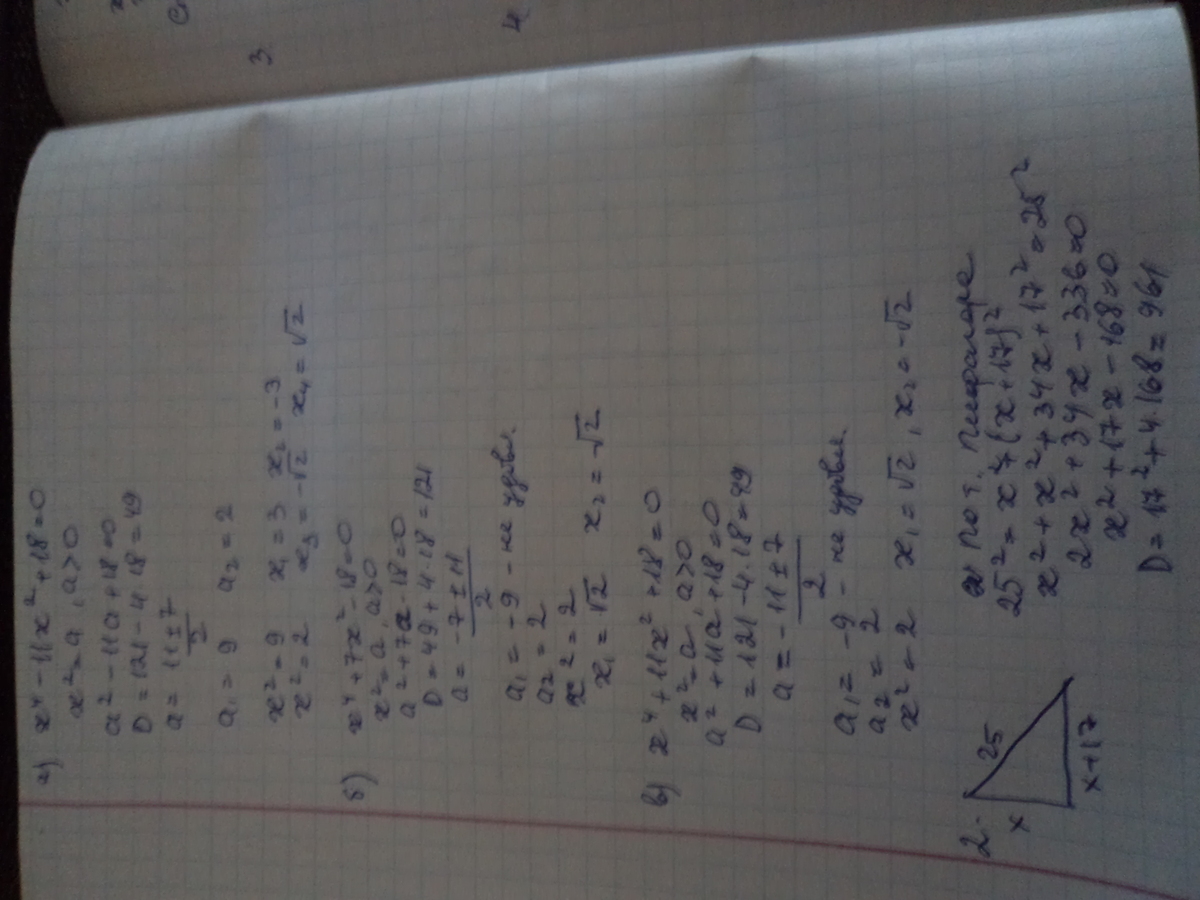 а) x⁴ - 11x² + 18 = 0
x² = a, a > 0
a² - 11a + 18 = 0
D = 121 - 4 · 18 = 49
a = (11 ± 7)/2
a₁ = 9 a₂ = 2
x² = 9 x₁ = 3 x₂ = -3
x² = 2 x₃ = -√2 x₄ = √2
б) x⁴ + 7x² - 18 = 0
x² = a, a > 0
a² + 7a - 18 = 0
D = 49 + 4 · 18 = 121
a = (-7 ± 11)/2
a₁ = -9 - не удовл.
a₂ = 2
x² = 2
x₁ = √2 x₂ = -√2
в) x⁴ + 11x² + 18 = 0
x² = a, a > 0
a² + 11a + 18 = 0
D = 121 - 4 · 18 = 49
a = (-11 ± 7)/2
a₁ = -9 - не удовл.
a₂ = 2
x² = 2 x₁ = √2, x₂ = -√2
2.
x
25
x+17
По т. Пифагора
25² = x² + (x + 17)²
x² + x² + 34x + 17² = 25²
2x² + 34x - 336 = 0
x² + 17x - 168 = 0
D = 17² + 4 · 168 = 961
3
4